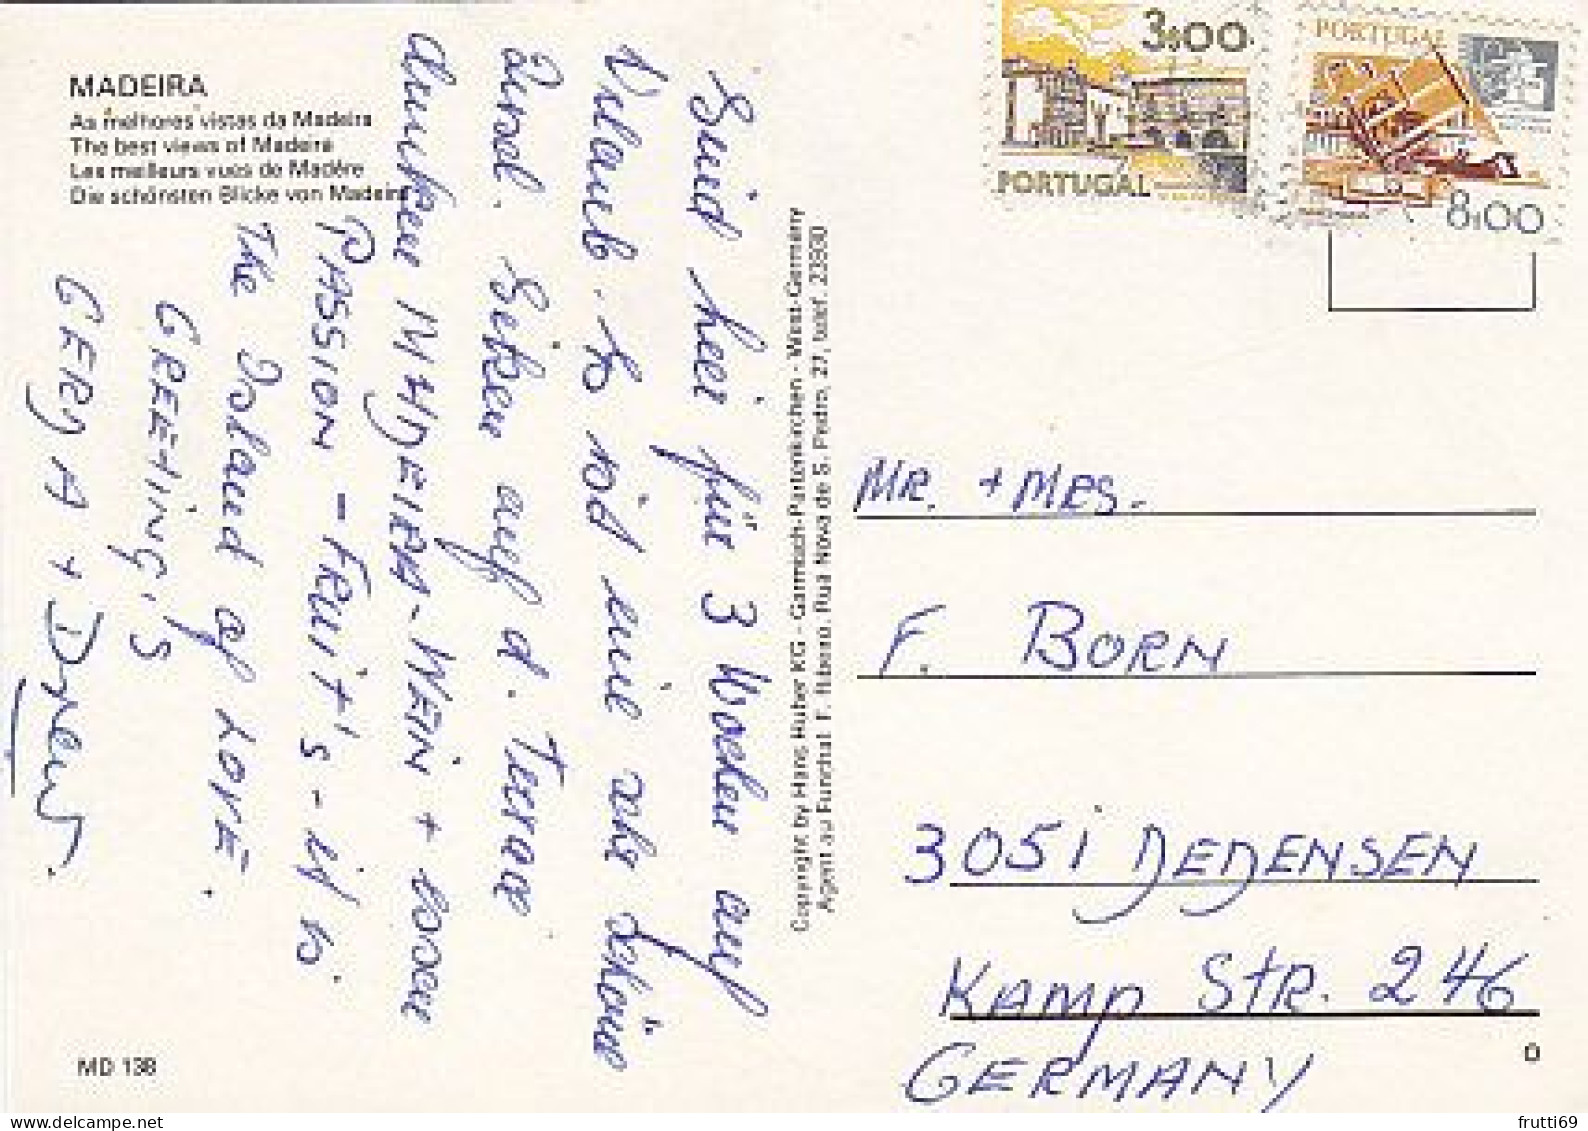 MADEIRA
As melhores vistas da Madeira
The best views of Madeira
Les meilleurs vues de Madère
Die schönsten Blicke von Madeira
Sind hier für 3 Wochen auf
Urlaub. Es ist eine sehr schöne
Insel. Sitzen auf d. Terrace
drinken MADEIRA-WEIN + essen
PASSION-FRUIT'S - it is
the Island of LOVE.
GREETING'S
GERDA +
MD 138
Copyright by Hans Huber KG - Garmisch-Partenkirchen - West-Germany
Agent au Funchal: F. Ribeiro, Rua Nova de S. Pedro, 27, telef. 23930
3$00
PORTUGAL
PORTUGAL
8$00
MR. + MRS.
F. BORN
3051 DEDENSEN
KAMP STR. 246
GERMANY
D
frutti69